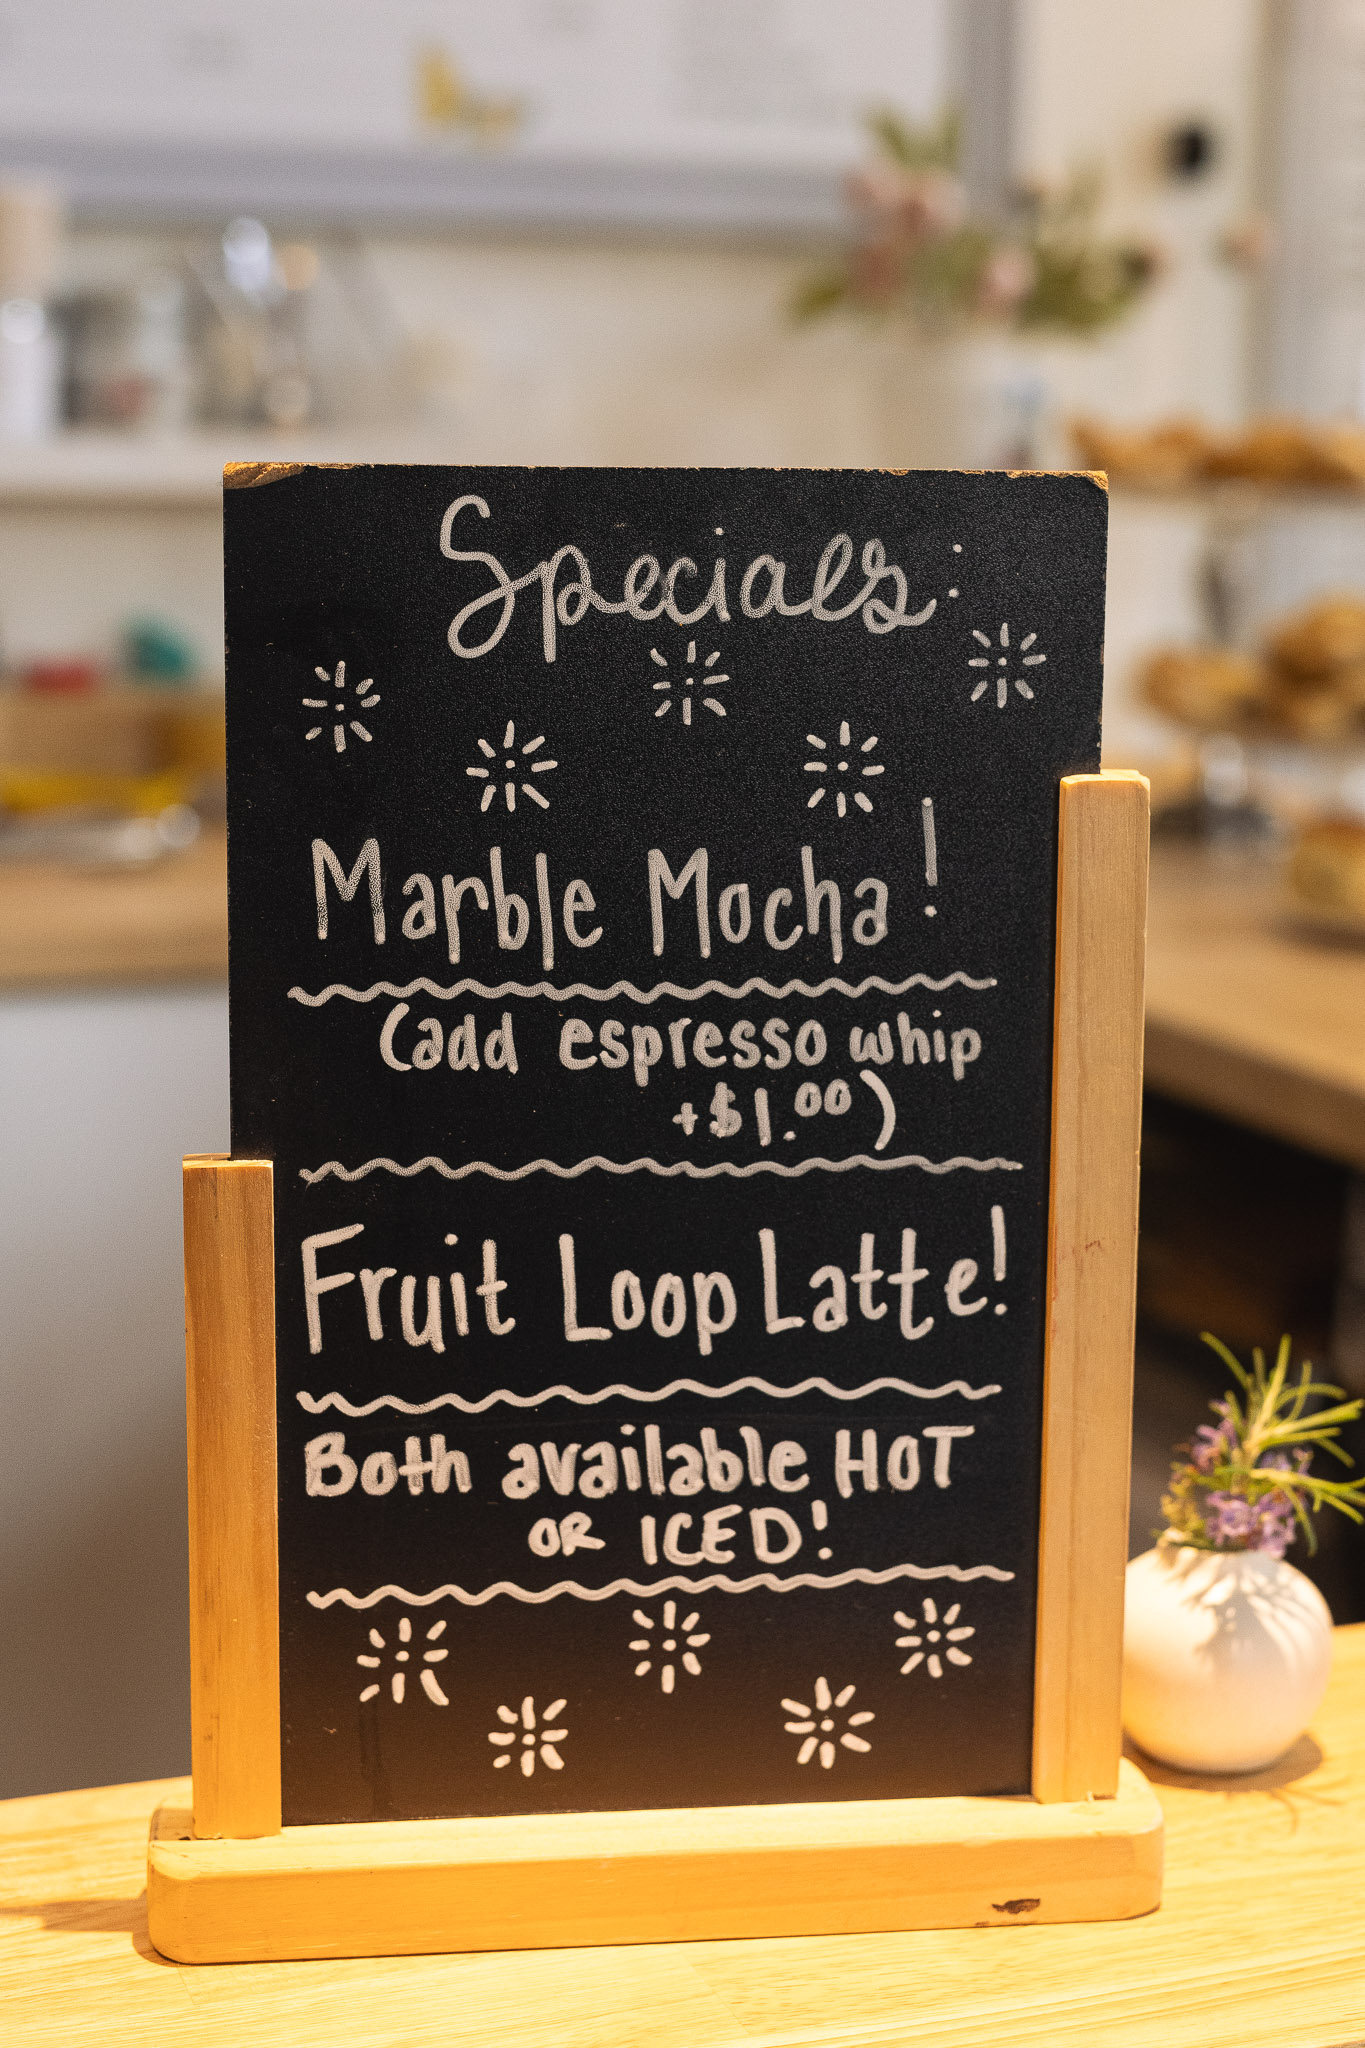 Specials:
Marble Mocha!
(add espresso whip
+$1.00)
Fruit Loop Latte!
Both available HOT
OR ICED!